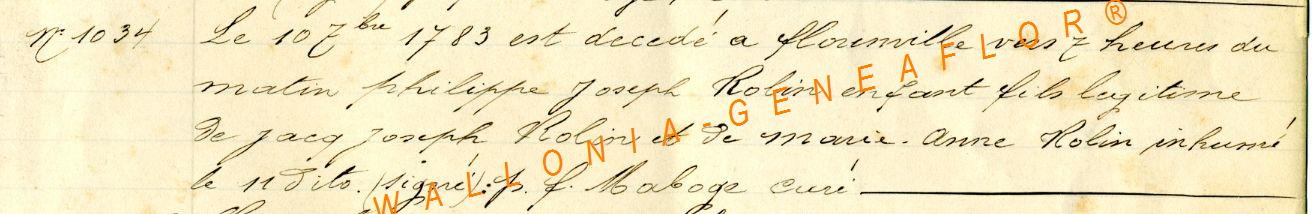 N° 1034
Le 10 7bre 1783 est decedé a flounville vers 7 heures du
matin philippe Joseph Robin enfant fils legitime
de jacq Joseph Robin et de marie-anne Robin inhumé
le 11 dito. (signé): p. f. Maboge curé
WALLONIA-GENEAFLOR®